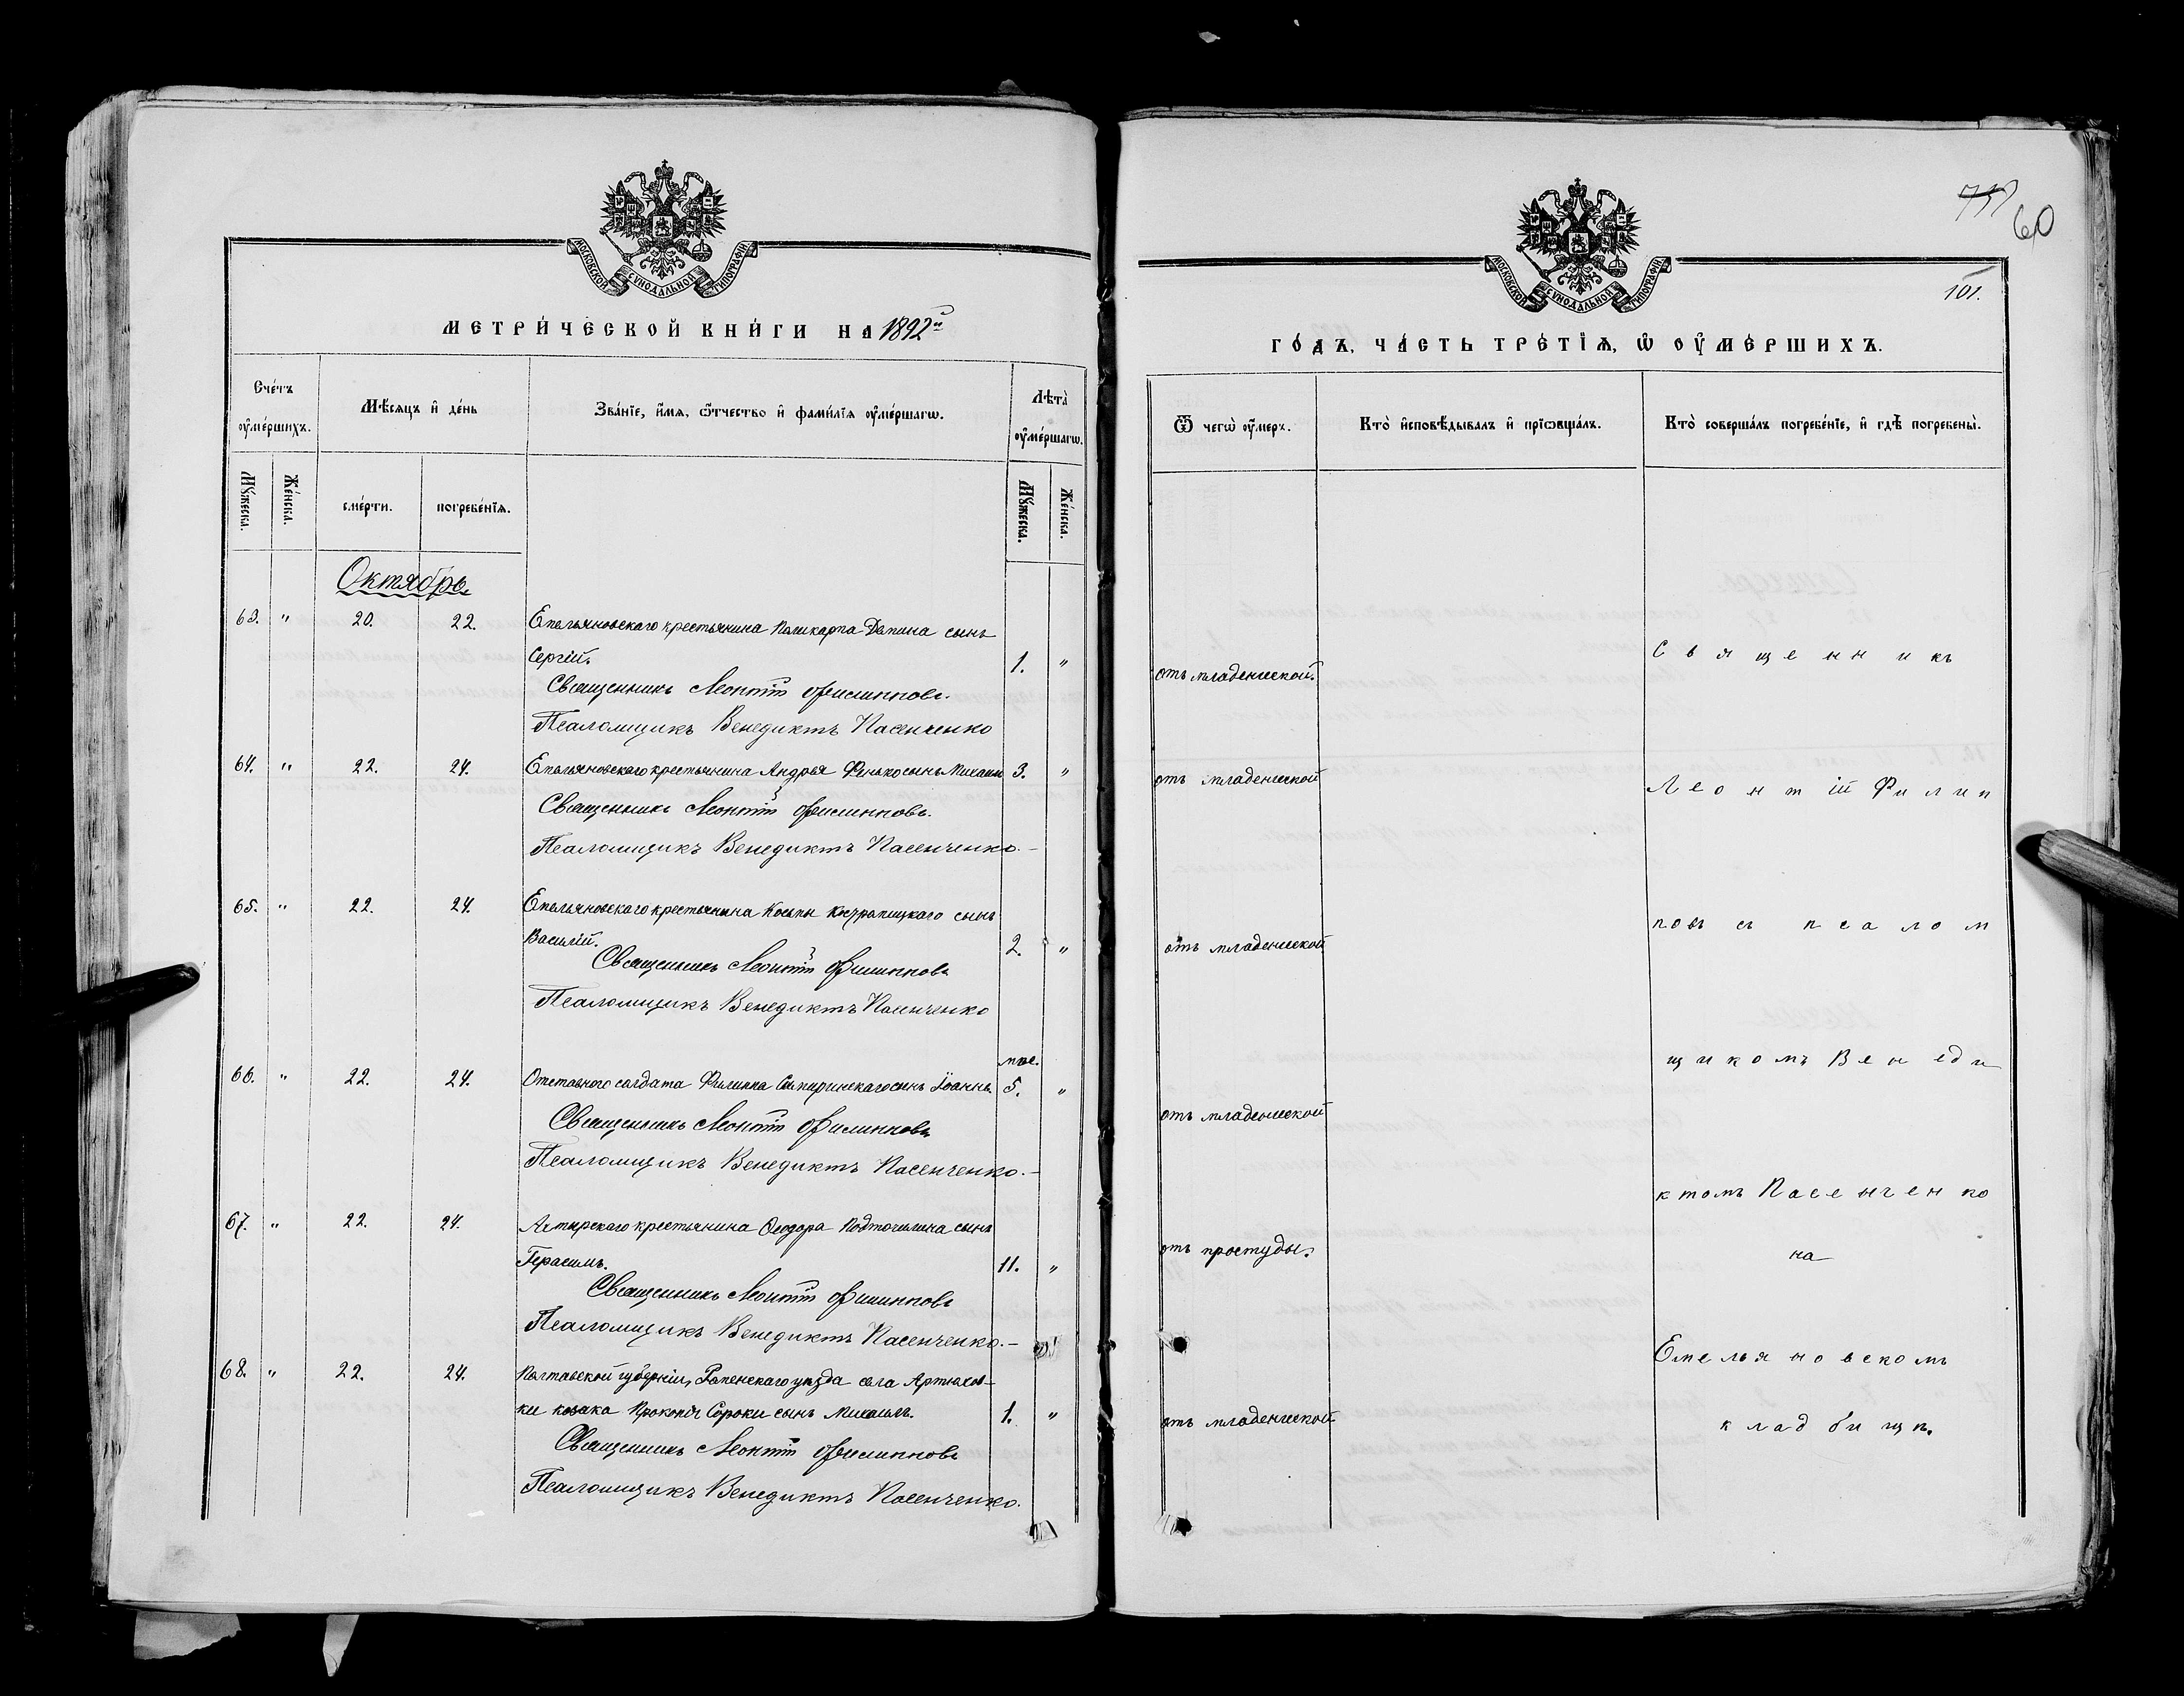 МОСКОВСКОЙ СѴНОДАЛЬНОЙ ТИПОГРАФІИ
МЕТРИ́ЧЕСКОЙ КНИ́ГИ НА 1892й
Сче́тъ ᲂу҆ме́ршихъ.
Мꙋ́жеска.
Же́нска.
Мѣ́сяцъ и҆ де́нь
сме́рти.
погребе́нїѧ.
Зва́нїе, и҆́мѧ, ѻ҆́тчество и҆ фами́лїѧ ᲂу҆ме́ршагѡ.
Лѣта̀ ᲂу҆ме́ршагѡ.
Мꙋ́жеска.
Же́нска.
Октябрь.
63. " 20. 22. Емельяновскаго крестьянина Поликарпа Демина сынъ
Сергій. 1. "
Священникъ Леонтій Филипповъ.
Псаломщикъ Венедиктъ Пасенченко
64. " 22. 24. Емельяновскаго крестьянина Андрея Фенько сынъ Михаилъ 3. "
Священникъ Леонтій Филипповъ.
Псаломщикъ Венедиктъ Пасенченко.–
65. " 22. 24. Емельяновскаго крестьянина Косьмы сынъ
Василій. 2. "
Священникъ Леонтій Филипповъ
Псаломщикъ Венедиктъ Пасенченко
66. " 22. 24. Отставного солдата Филиппа сынъ Іоаннъ мѣс. 5. "
Священникъ Леонтій Филипповъ
Псаломщикъ Венедиктъ Пасенченко.–
67. " 22. 24. Ахтырскаго крестьянина Ѳеодора Подточилина сынъ
Герасимъ. 11. "
Священникъ Леонтій Филипповъ
Псаломщикъ Венедиктъ Пасенченко.–
68. " 22. 24. Полтавской губерніи, Роменскаго уѣзда села Артюхов-
ки козака Прокопія Сороки сынъ Михаилъ. 1. "
Священникъ Леонтій Филипповъ
Псаломщикъ Венедиктъ Пасенченко.
60
101.
МОСКОВСКОЙ СѴНОДАЛЬНОЙ ТИПОГРАФІИ
ГО́ДЪ, ЧА́СТЬ ТРЕ́ТЇѦ, Ѡ҆ ОУ҆МЕ́РШИХЪ.
Ѿ чегѡ̀ ᲂу҆́меръ.
Кто̀ и҆сповѣ́дывалъ и҆ прїѡбща́лъ.
Кто̀ соверша́лъ погребе́нїе, и҆ гдѣ̀ погребены̀.
отъ младенческой.
отъ младенческой
отъ младенческой
отъ младенческой
отъ простуды.
отъ младенческой
Священникъ
Леонтій Филип
повъ съ псалом
щикомъ Венеди
ктомъ Пасенченко
на
Емельяновскомъ
кладбищѣ.